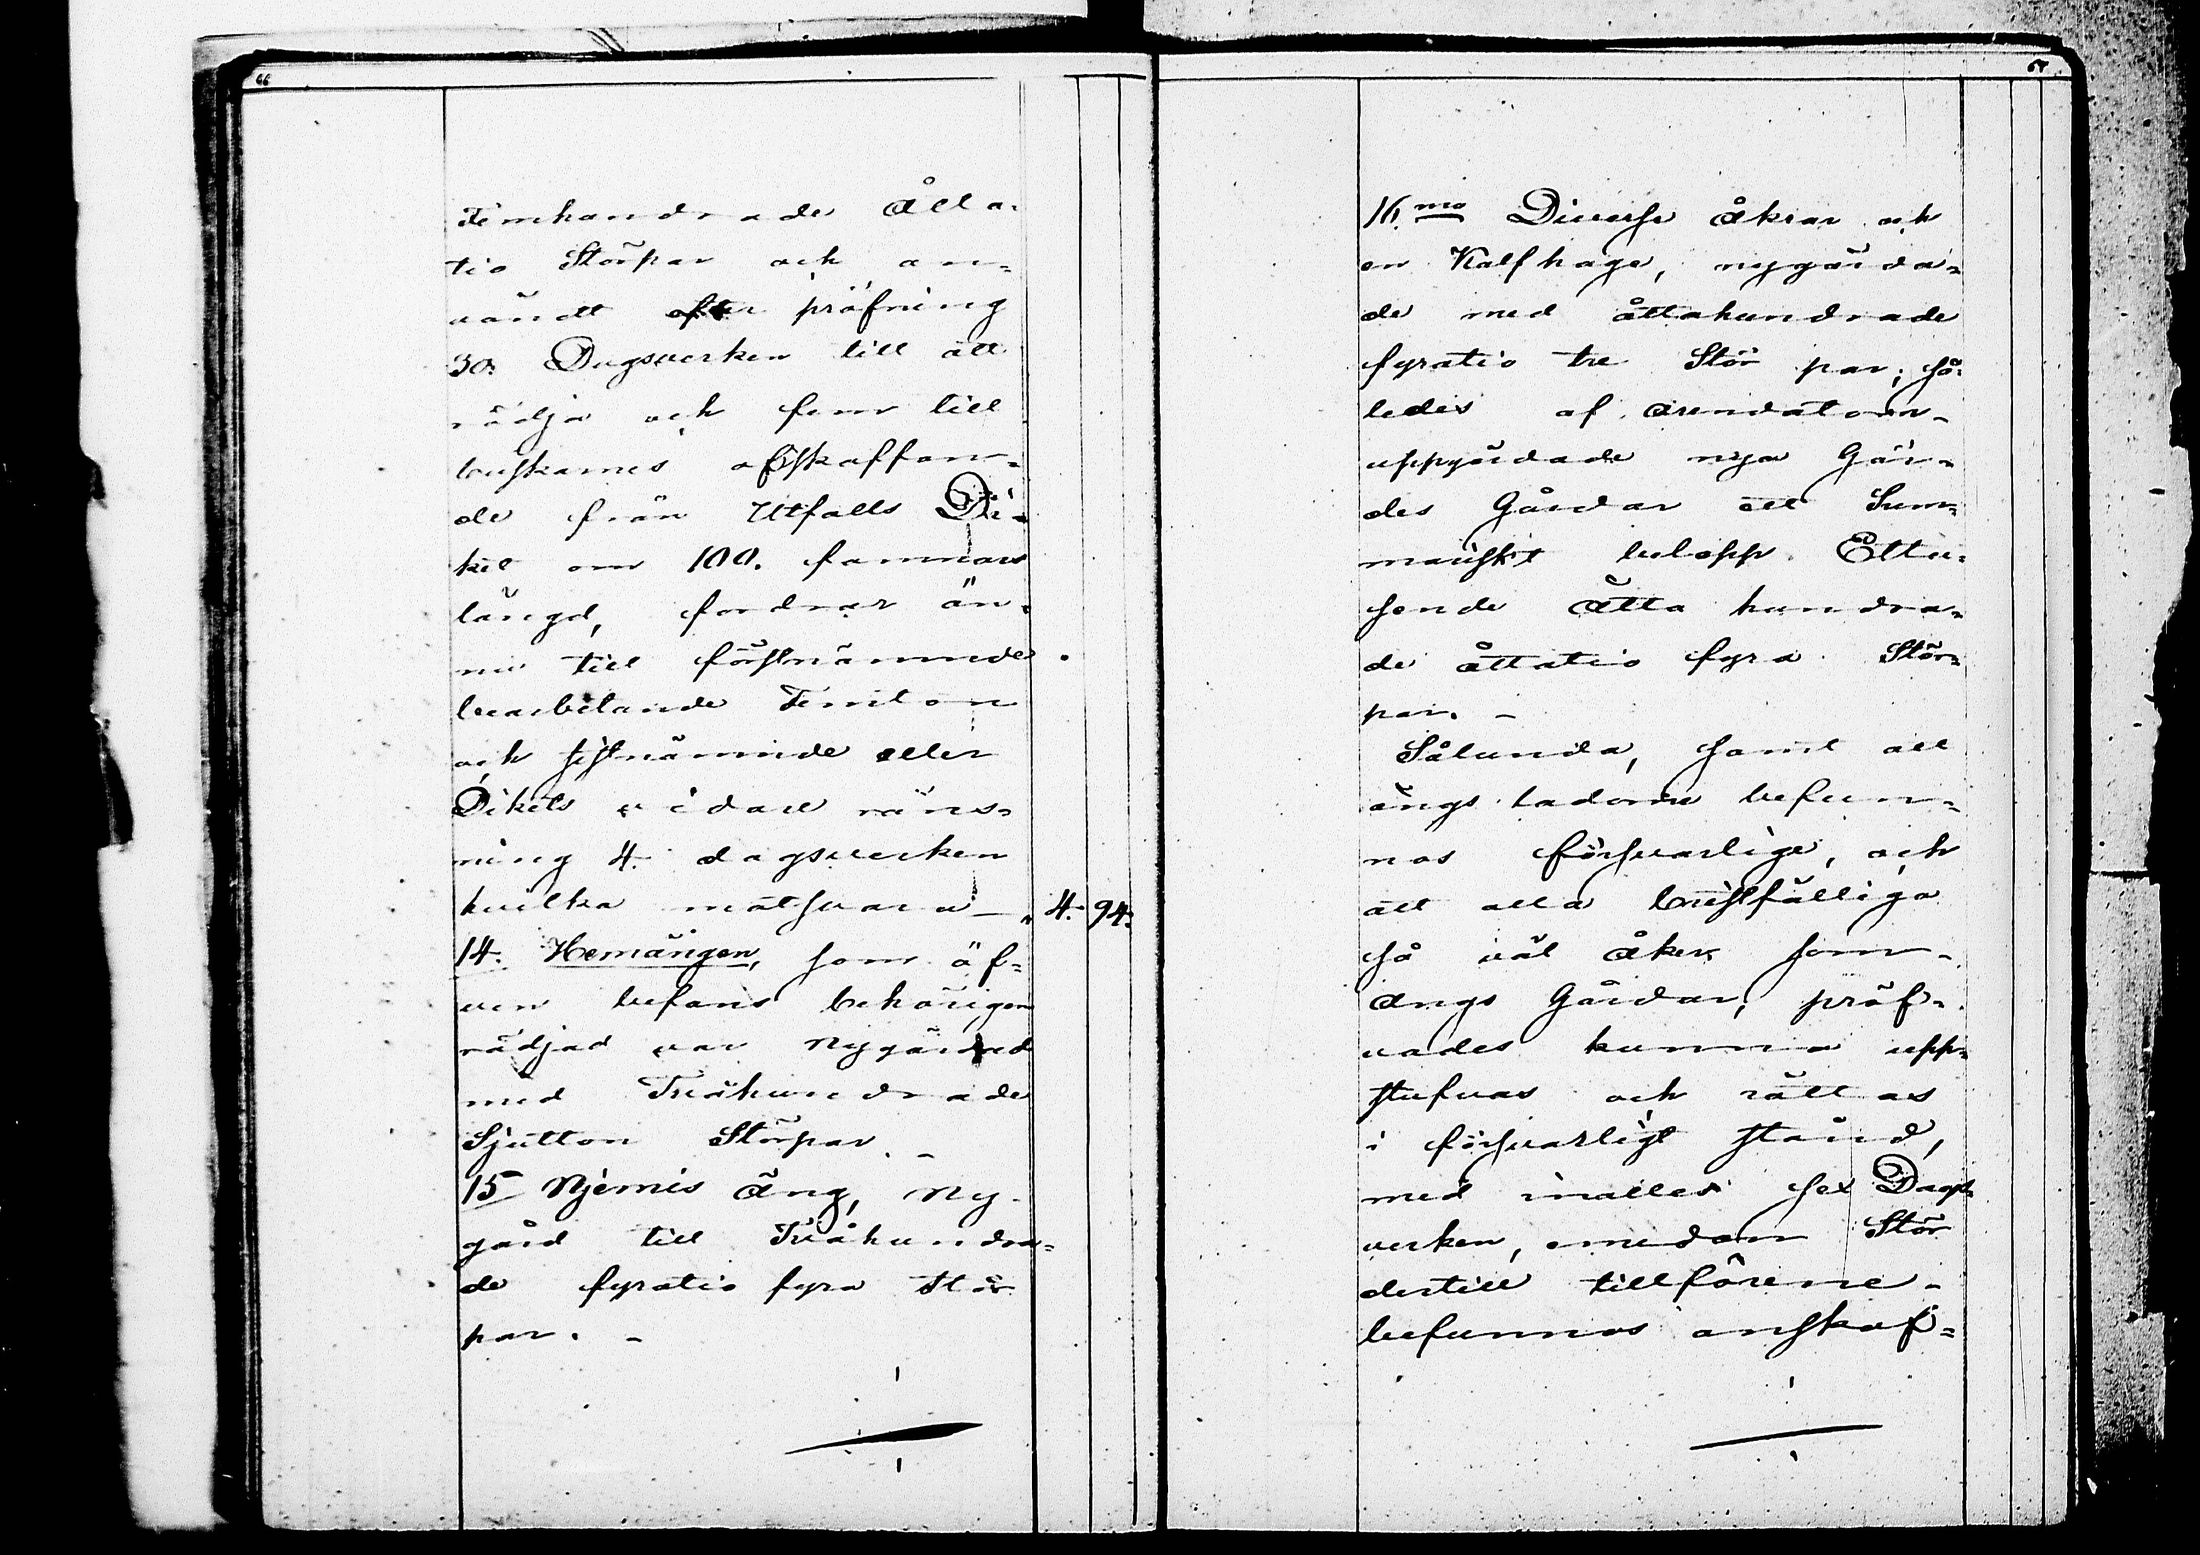 66
Femhundrade Åtta-
tio Störpar och an-
vändt efter pröfning
30. Dagsverken till att
rödja och fem till
buskarnes afskaffan-
de från Utfalls Di-
ket om 100. famnars
längd, fordrar än-
nu till förstnämnde
bearbetande Femton
och sistnämnde eller
Dikets vidare räns-
ning 4. dagsverken
hvilka motsvara — " 4. 94.
14. Hemängen, som äf-
ven befans behörigen
rödjad var nygärdad
med Tvåhundrade
Sjutton Störpar. —
15 Njemis äng, Ny-
gärd till Tvåhundra-
de fyratio fyra Stör
par. —
67
16.mo Diverse åkrar och
en Kalfhage, nygärda-
de med åttahundrade
fyratio tre Stör par; så-
ledes af arendatorn
uppgärdade nya Gär-
des Gårdar till Sum-
mariskt belopp Ettu-
sende Åtta hundra-
de åttatio fyra Stör-
par. —
Sålunda, samt att
ängs ladorne befun-
nos försvarlige, och
att alla bristfälliga
så väl åker som
ängs Gärdar, pröf-
vades kunna upp-
stufvas och rättas
i försvarligt stånd,
med inalles sex Dags-
verken, emedan Stör
dertill tillförene
befunnos anskaf-